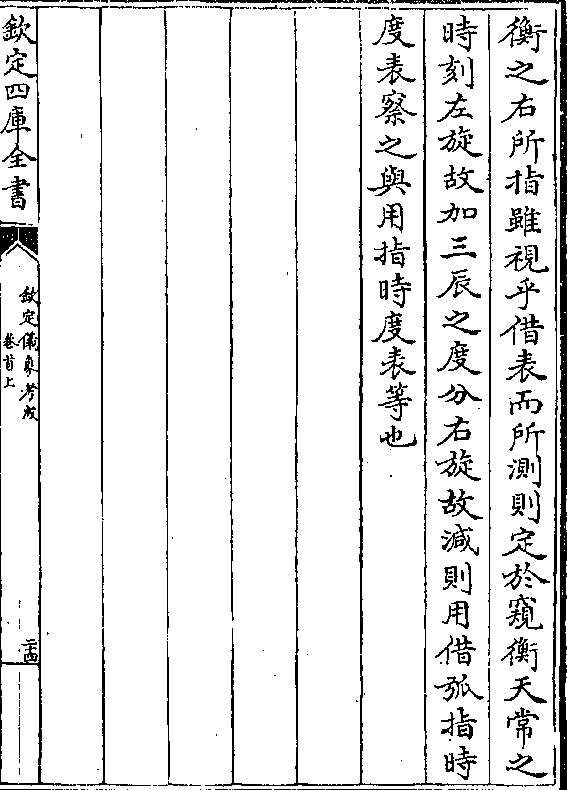 衡之右所指雖視乎借表而所測則定於窺衡天常之
時刻左旋故加三辰之度分右旋故減則用借弧指時
度表察之與用指時度表等也
欽定四庫全書
欽定儀象考成
卷首上
二十四